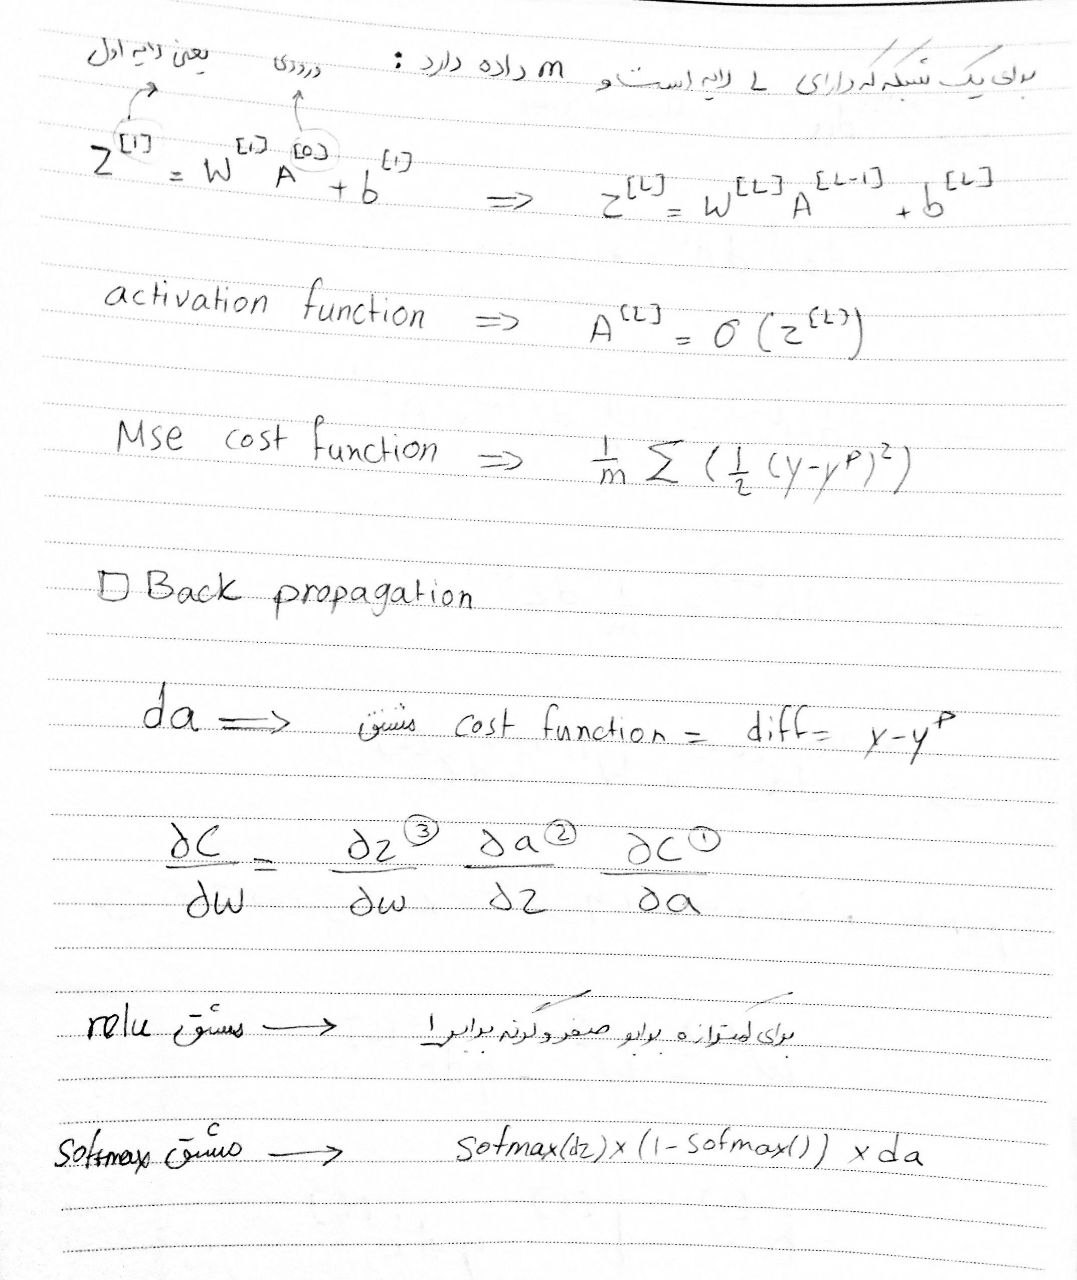 برای یک شبکه که دارای L لایه است و m داده دارد :
یعنی لایه اول
ورودی
Z^[1] = W^[1] A^[0] + b^[1] ⇒ Z^[L] = W^[L] A^[L-1] + b^[L]
activation function ⇒ A^[L] = σ (z^[L])
Mse cost function ⇒ 1/m Σ (1/2 (y-y^p)^2)
□ Back propagation
da ⇒ مشتق cost function = diff = y-y^p
∂C/∂w = ∂z/∂w ③ ∂a/∂z ② ∂C/∂a ①
relu مشتق → برای کمتر از ه برابر صفر وگرنه برابر 1
Sofmax مشتق → Sofmax(dz) × (1- Sofmax()) × da